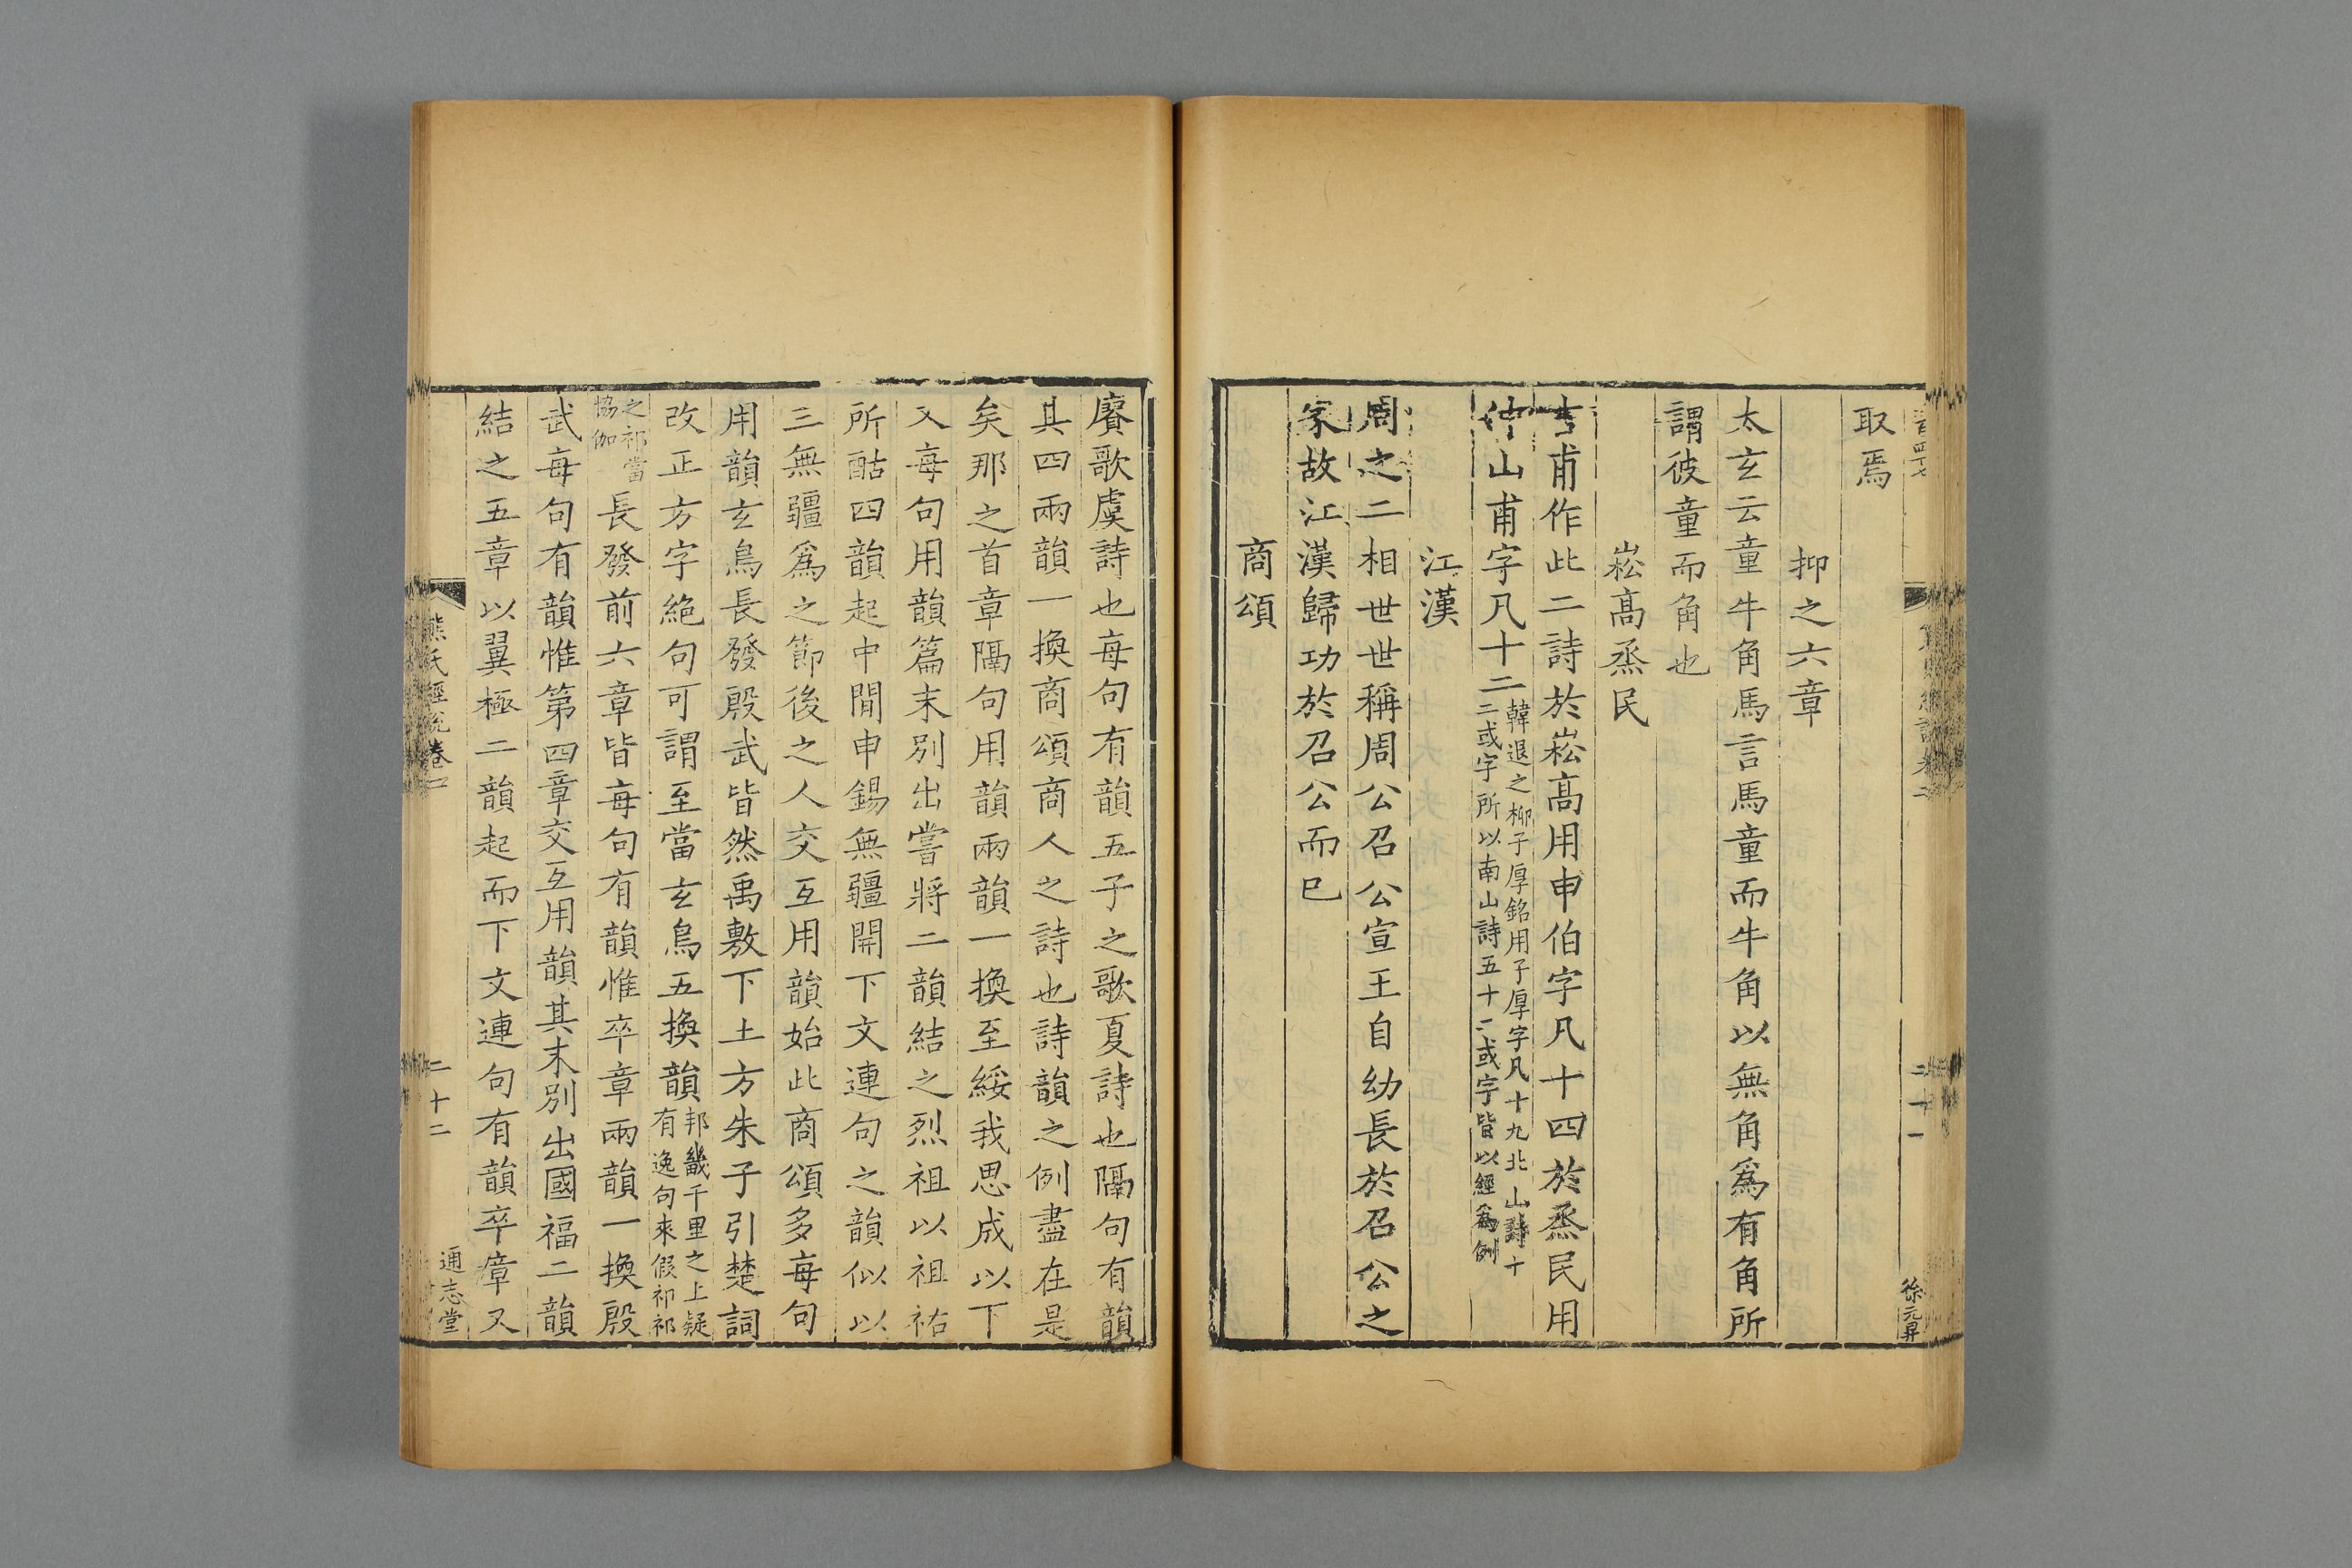 取焉
抑之六章
太玄云童牛角馬言馬童而牛角以無角爲有角所
謂彼童而角也
崧髙烝民
吉甫作此二詩於崧髙用申伯字凡十四於烝民用
仲山甫字凡十二韓退之柳子厚銘用子厚字凡十九北山詩十
二或字所以南山詩五十二或字皆以經爲例
江漢
周之二相世世稱周公召公宣王自幼長於召公之
家故江漢歸功於召公而已
商頌
徐元昇
二十一
賡歌虞詩也每句有韻五子之歌夏詩也隔句有韻
其四兩韻一換商頌商人之詩也詩韻之例盡在是
矣那之首章隔句用韻兩韻一換至綏我思成以下
又每句用韻篇末別出嘗將二韻結之烈祖以祖祜
所酤四韻起中閒申錫無疆開下文連句之韻似以
三無疆爲之節後之人交互用韻始此商頌多每句
用韻玄鳥長發殷武皆然禹敷下土方朱子引楚詞
改正方字絶句可謂至當玄鳥五換韻邦畿千里之上疑
有逸句來假祁祁
之祁當
協伽長發前六章皆每句有韻惟卒章兩韻一換殷
武每句有韻惟第四章交互用韻其末別出國福二韻
結之五章以翼極二韻起而下文連句有韻卒章又
熊氏經說卷二
二十二
通志堂